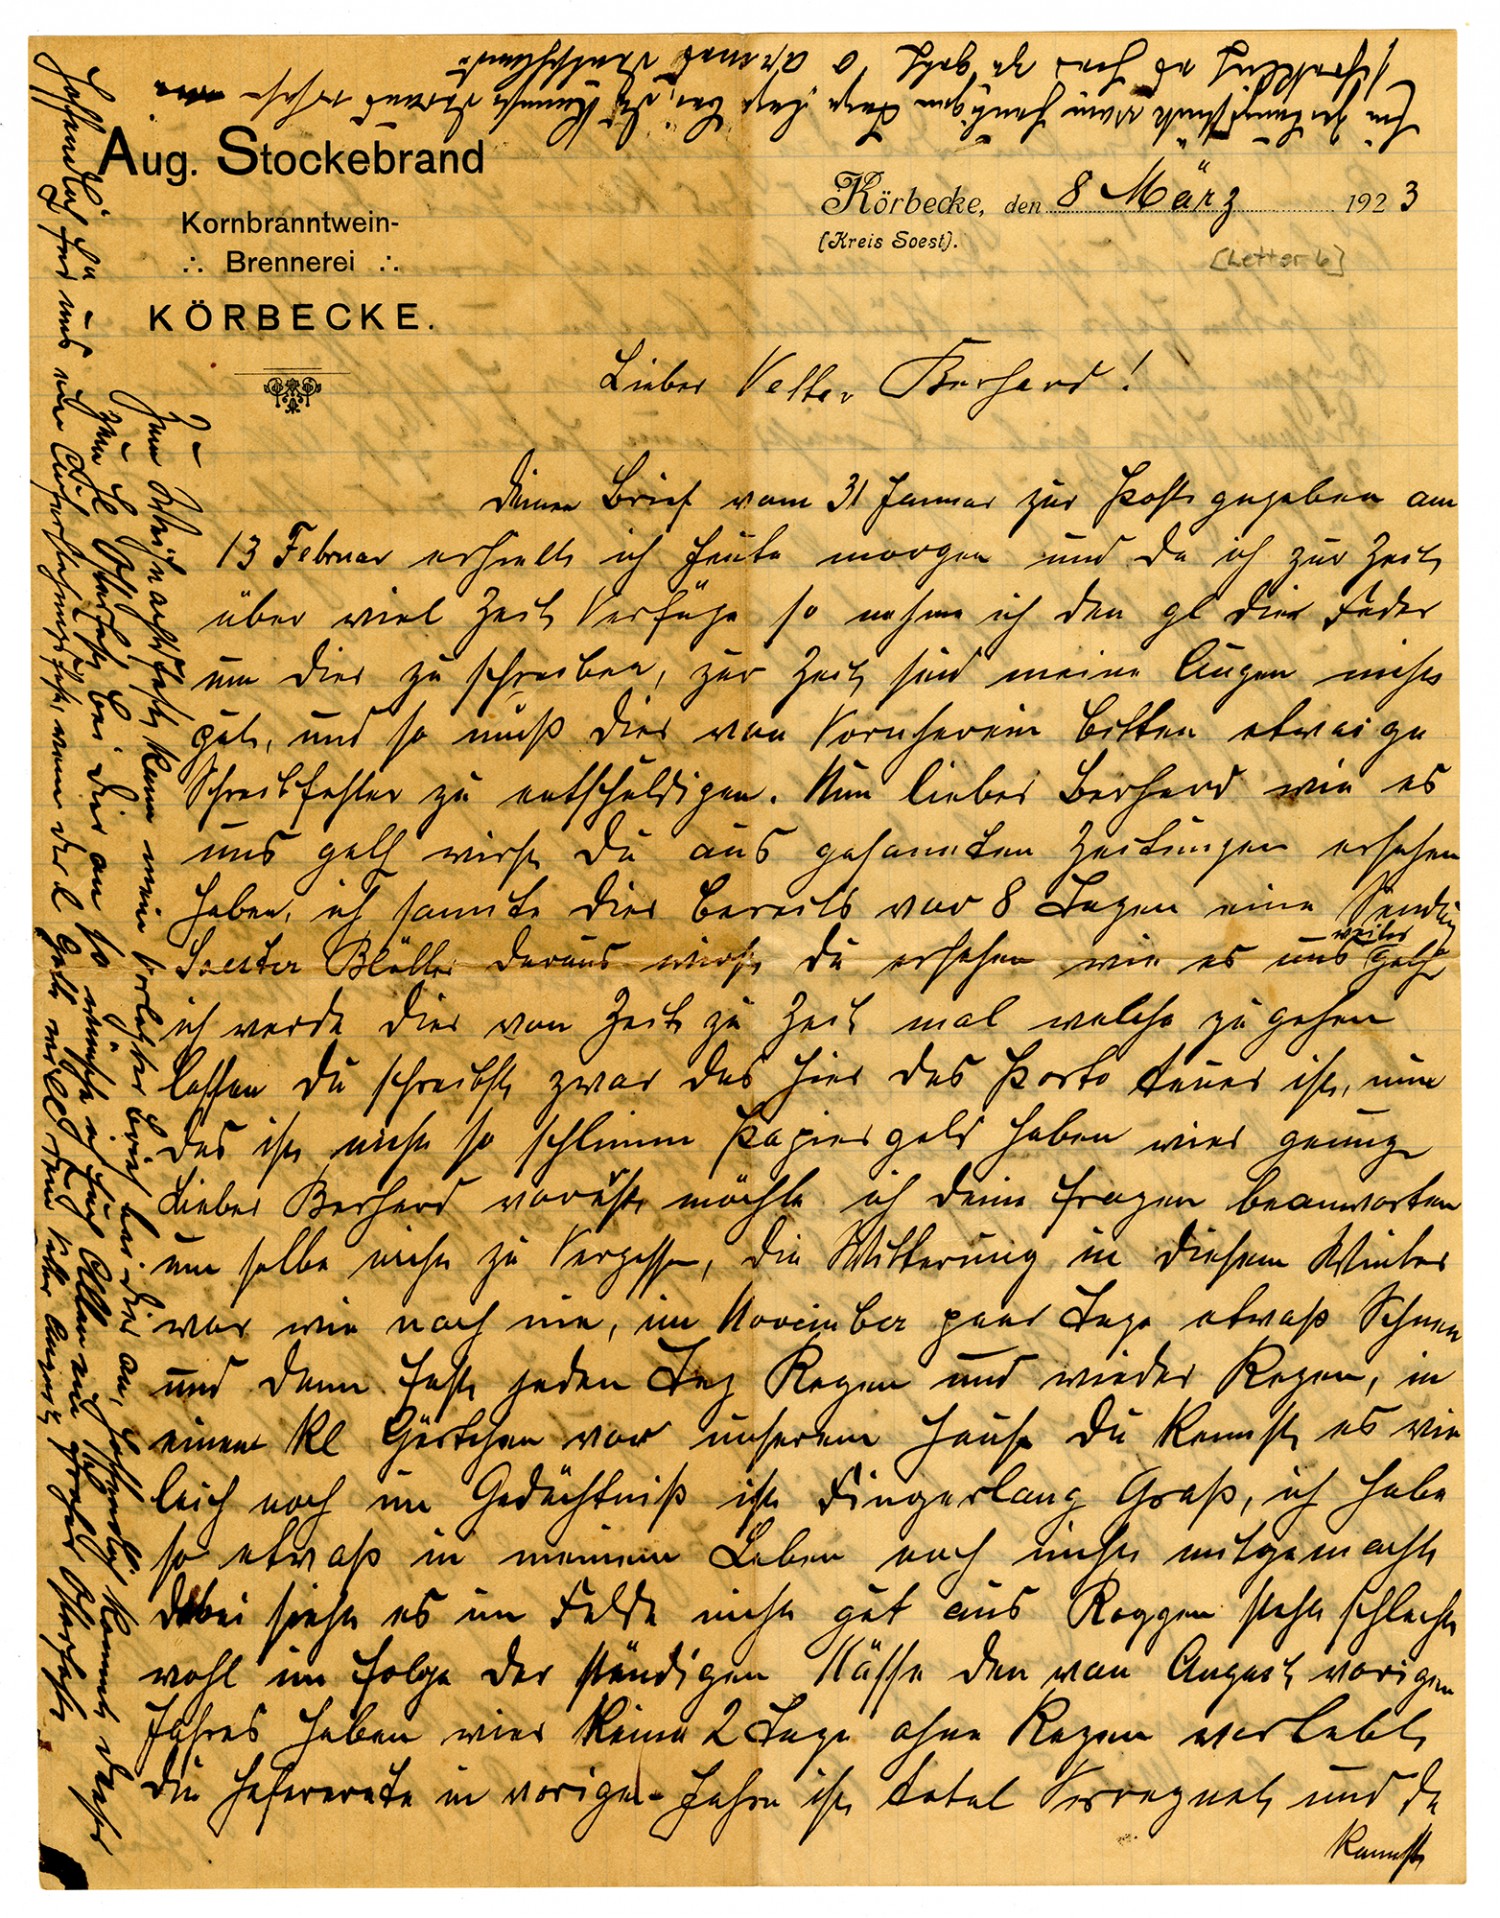 Aug. Stockebrand
Kornbranntwein-
∴ Brennerei ∴
KÖRBECKE.
Körbecke, den 8 März 1923
(Kreis Soest).
[Letter 6]
Lieber Vetter Berhard!
Deinen Brief vom 31 Januar zur Post gegeben am
13 Februar erhielt ich heute morgen und da ich zur Zeit
über viel Zeit Verfüge so nehme ich den gl die Feder
um dier zu schreiben, zur Zeit sind meine Augen nicht
gut, und so muß dier von Vornherein bitten etwaige
Schreibfehler zu entschuldigen. Nun lieber Berhard wie es
uns geht wirst du aus gesannten Zeitungen ersehen
haben, ich sannte dier bereits vor 8 Tagen eine Sendung
Soester Blätter daraus wirst du ersehen wie es uns weiter geht
ich werde dier von Zeit zu Zeit mal welche zu gehen
lassen du schreibst zwar das hier das Porto teuer ist, nun
das ist nicht so schlimm Papiergeld haben wier genung
Lieber Berhard vorerst möchte ich deine Fragen beanworten
um selbe nicht zu Vergessen, die Witterung in diesem Winter
war wie noch nie, im November paar Tage etwaß Schnee
und dann fast jeden Tag Regen und wieder Regen, in
einem kl Gärtchen vor unserem Hause du kennst es vie
leich noch im Gedächtniß ist Fingerlang Graß, ich habe
so etwaß in meinem Leben noch nicht mitgemacht
dabei sieht es im Felde nicht gut aus Roggen steht schlecht
wohl im folge der ständigen Nässe den von August vorigen
Jahres haben wier keine 2 Tage ohne Regen verlebt,
die Haferernte in vorigen Jahre ist total Verregnet, und da
kannst
Zum Weihnachtsfest kam mein vorletzter Brief bei dier an, hoffendlich kommt dieser
zum hl Osterfest bei dier an so wünsche ich Euch Allen ein frohes Osterfest
hoffendlich für uns ein Auferstehungsfest, wenn der l Gott will Dein Vetter August